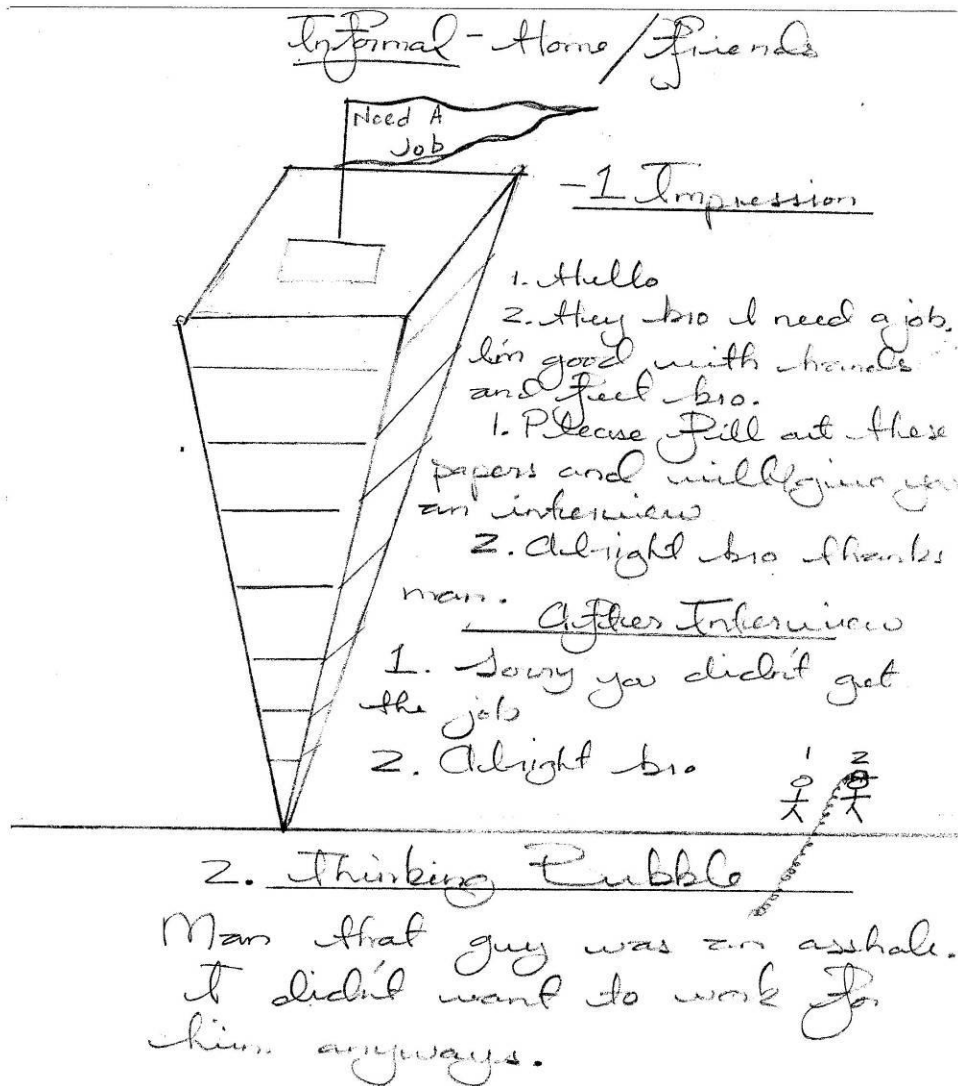 Informal - Home / friends
Need A
Job
-1 Impression
1. Hello
2. Hey bro I need a job.
I'm good with hands
and feet bro.
1. Please fill out these
papers and will give you
an interview
2. Alright bro thanks
man.
After Interview
1. Sorry you didn't get
the job
2. Alright bro.
1 2
2. Thinking Bubble
Man that guy was an asshole.
I didn't want to work for
him anyways.